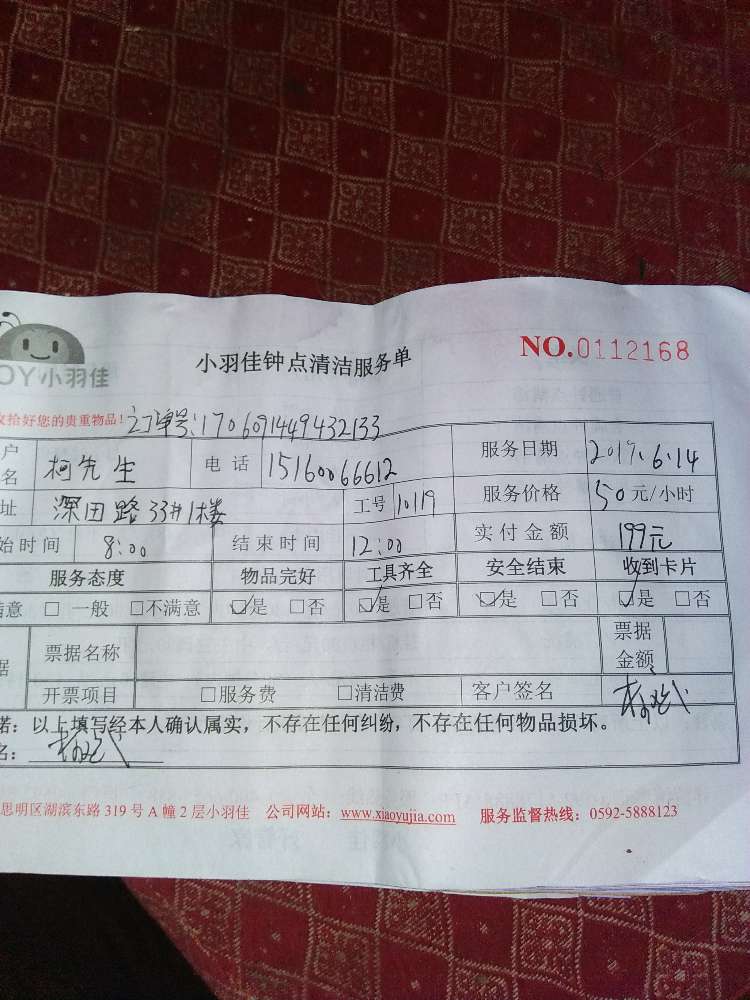 小羽佳钟点清洁服务单
NO.0112168
OY小羽佳
拾好您的贵重物品! 订单号:1706091449432133
户名 柯先生 电话 15160066612 服务日期 2017.6.14
址 深田路33#1楼 工号 10119 服务价格 50元/小时
始时间 8:00 结束时间 12:00 实付金额 199元
服务态度 物品完好 工具齐全 安全结束 收到卡片
意 □一般 □不满意 ☑是 □否 ☑是 □否 ☑是 □否 ☑是 □否
据 票据名称 票据金额
开票项目 □服务费 □清洁费 客户签名
诺：以上填写经本人确认属实，不存在任何纠纷，不存在任何物品损坏。
名：
思明区湖滨东路319号A幢2层小羽佳 公司网站：www.xiaoyujia.com 服务监督热线：0592-5888123